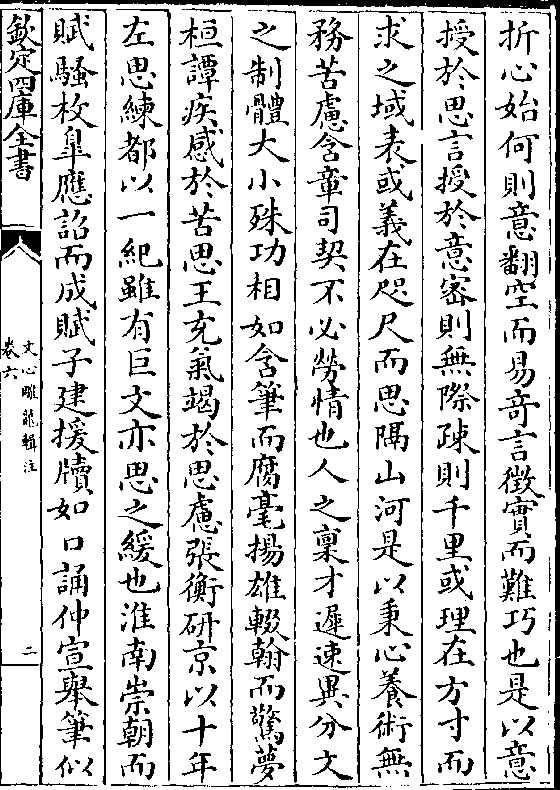 折心始何則意翻空而易奇言徵實而難巧也是以意
授於思言授於意密則無際疎則千里或理在方寸而
求之域表或義在咫尺而思隔山河是以秉心養術無
務苦慮含章司契不必勞情也人之稟才遲速異分文
之制體大小殊功相如含筆而腐毫揚雄輟翰而驚夢
桓譚疾感於苦思王充氣竭於思慮張衡研京以十年
左思練都以一紀雖有巨文亦思之緩也淮南崇朝而
賦騷枚臯應詔而成賦子建援牘如口誦仲宣舉筆似
欽定四庫全書
文心雕龍輯注
卷六
二